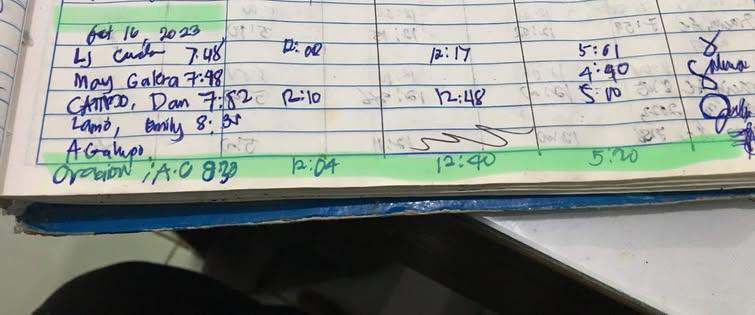 Oct 16, 2023
LJ 7:48 12:00 12:17 5:01
May Galera 7:48 4:40
Dan 7:52 12:10 12:48 5:10
Lamo, Emily 8:
A Galupo
A.C 8:30 12:04 12:40 5:20